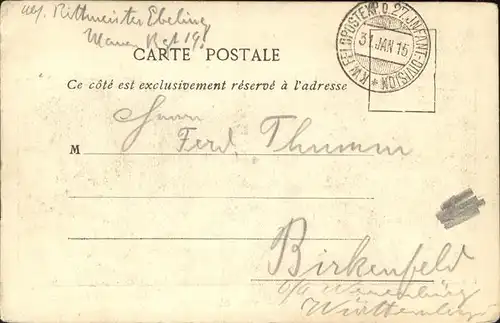 Abs. Rittmeister Ebeling
Ulanen Rgt 19.
CARTE POSTALE
Ce côté est exclusivement réservé à l'adresse
K.W. FELDPOSTEXP. D. 27. INFANT.-DIVISION *
31 JAN 15
Herrn
M Ferd. Thumm
Birkenfeld
b/a Neuenbürg
Württemberg